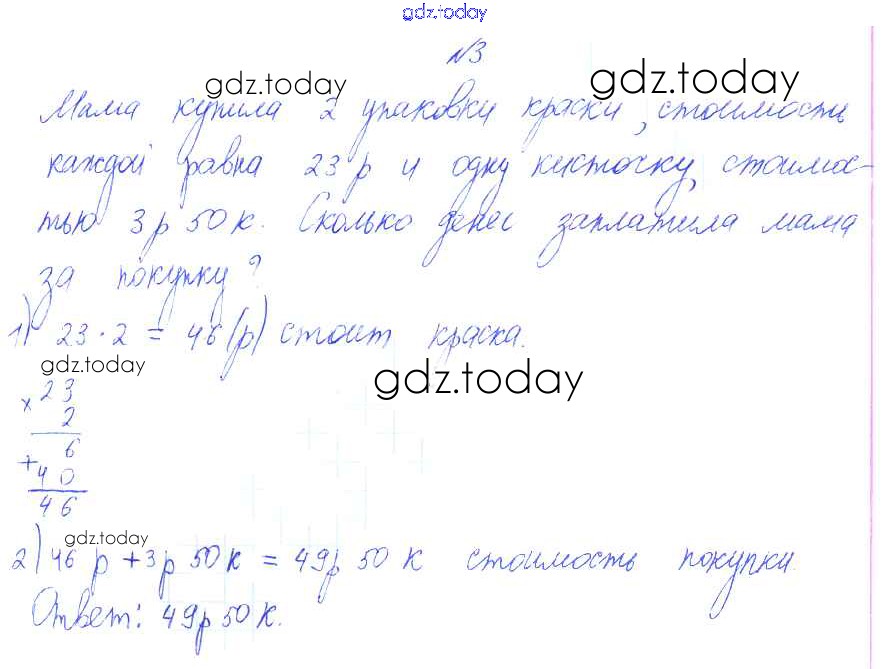 gdz.today
№3
gdz.today gdz.today
Мама купила 2 упаковки краски, стоимость
каждой равна 23 р и одну кисточку, стоимос-
тью 3 р 50 к. Сколько денег заплатила мама
за покупку?
1) 23 · 2 = 46 (р) стоит краска.
gdz.today gdz.today
× 23
2
6
+ 40
46
gdz.today
2) 46 р + 3 р 50 к = 49 р 50 к стоимость покупки
Ответ: 49 р 50 к.